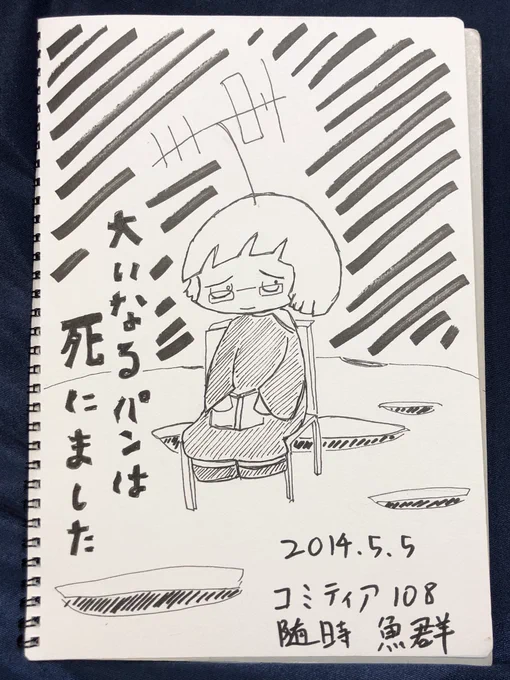 大いなるパンは
死にました
2014.5.5
コミティア108
随時 魚群